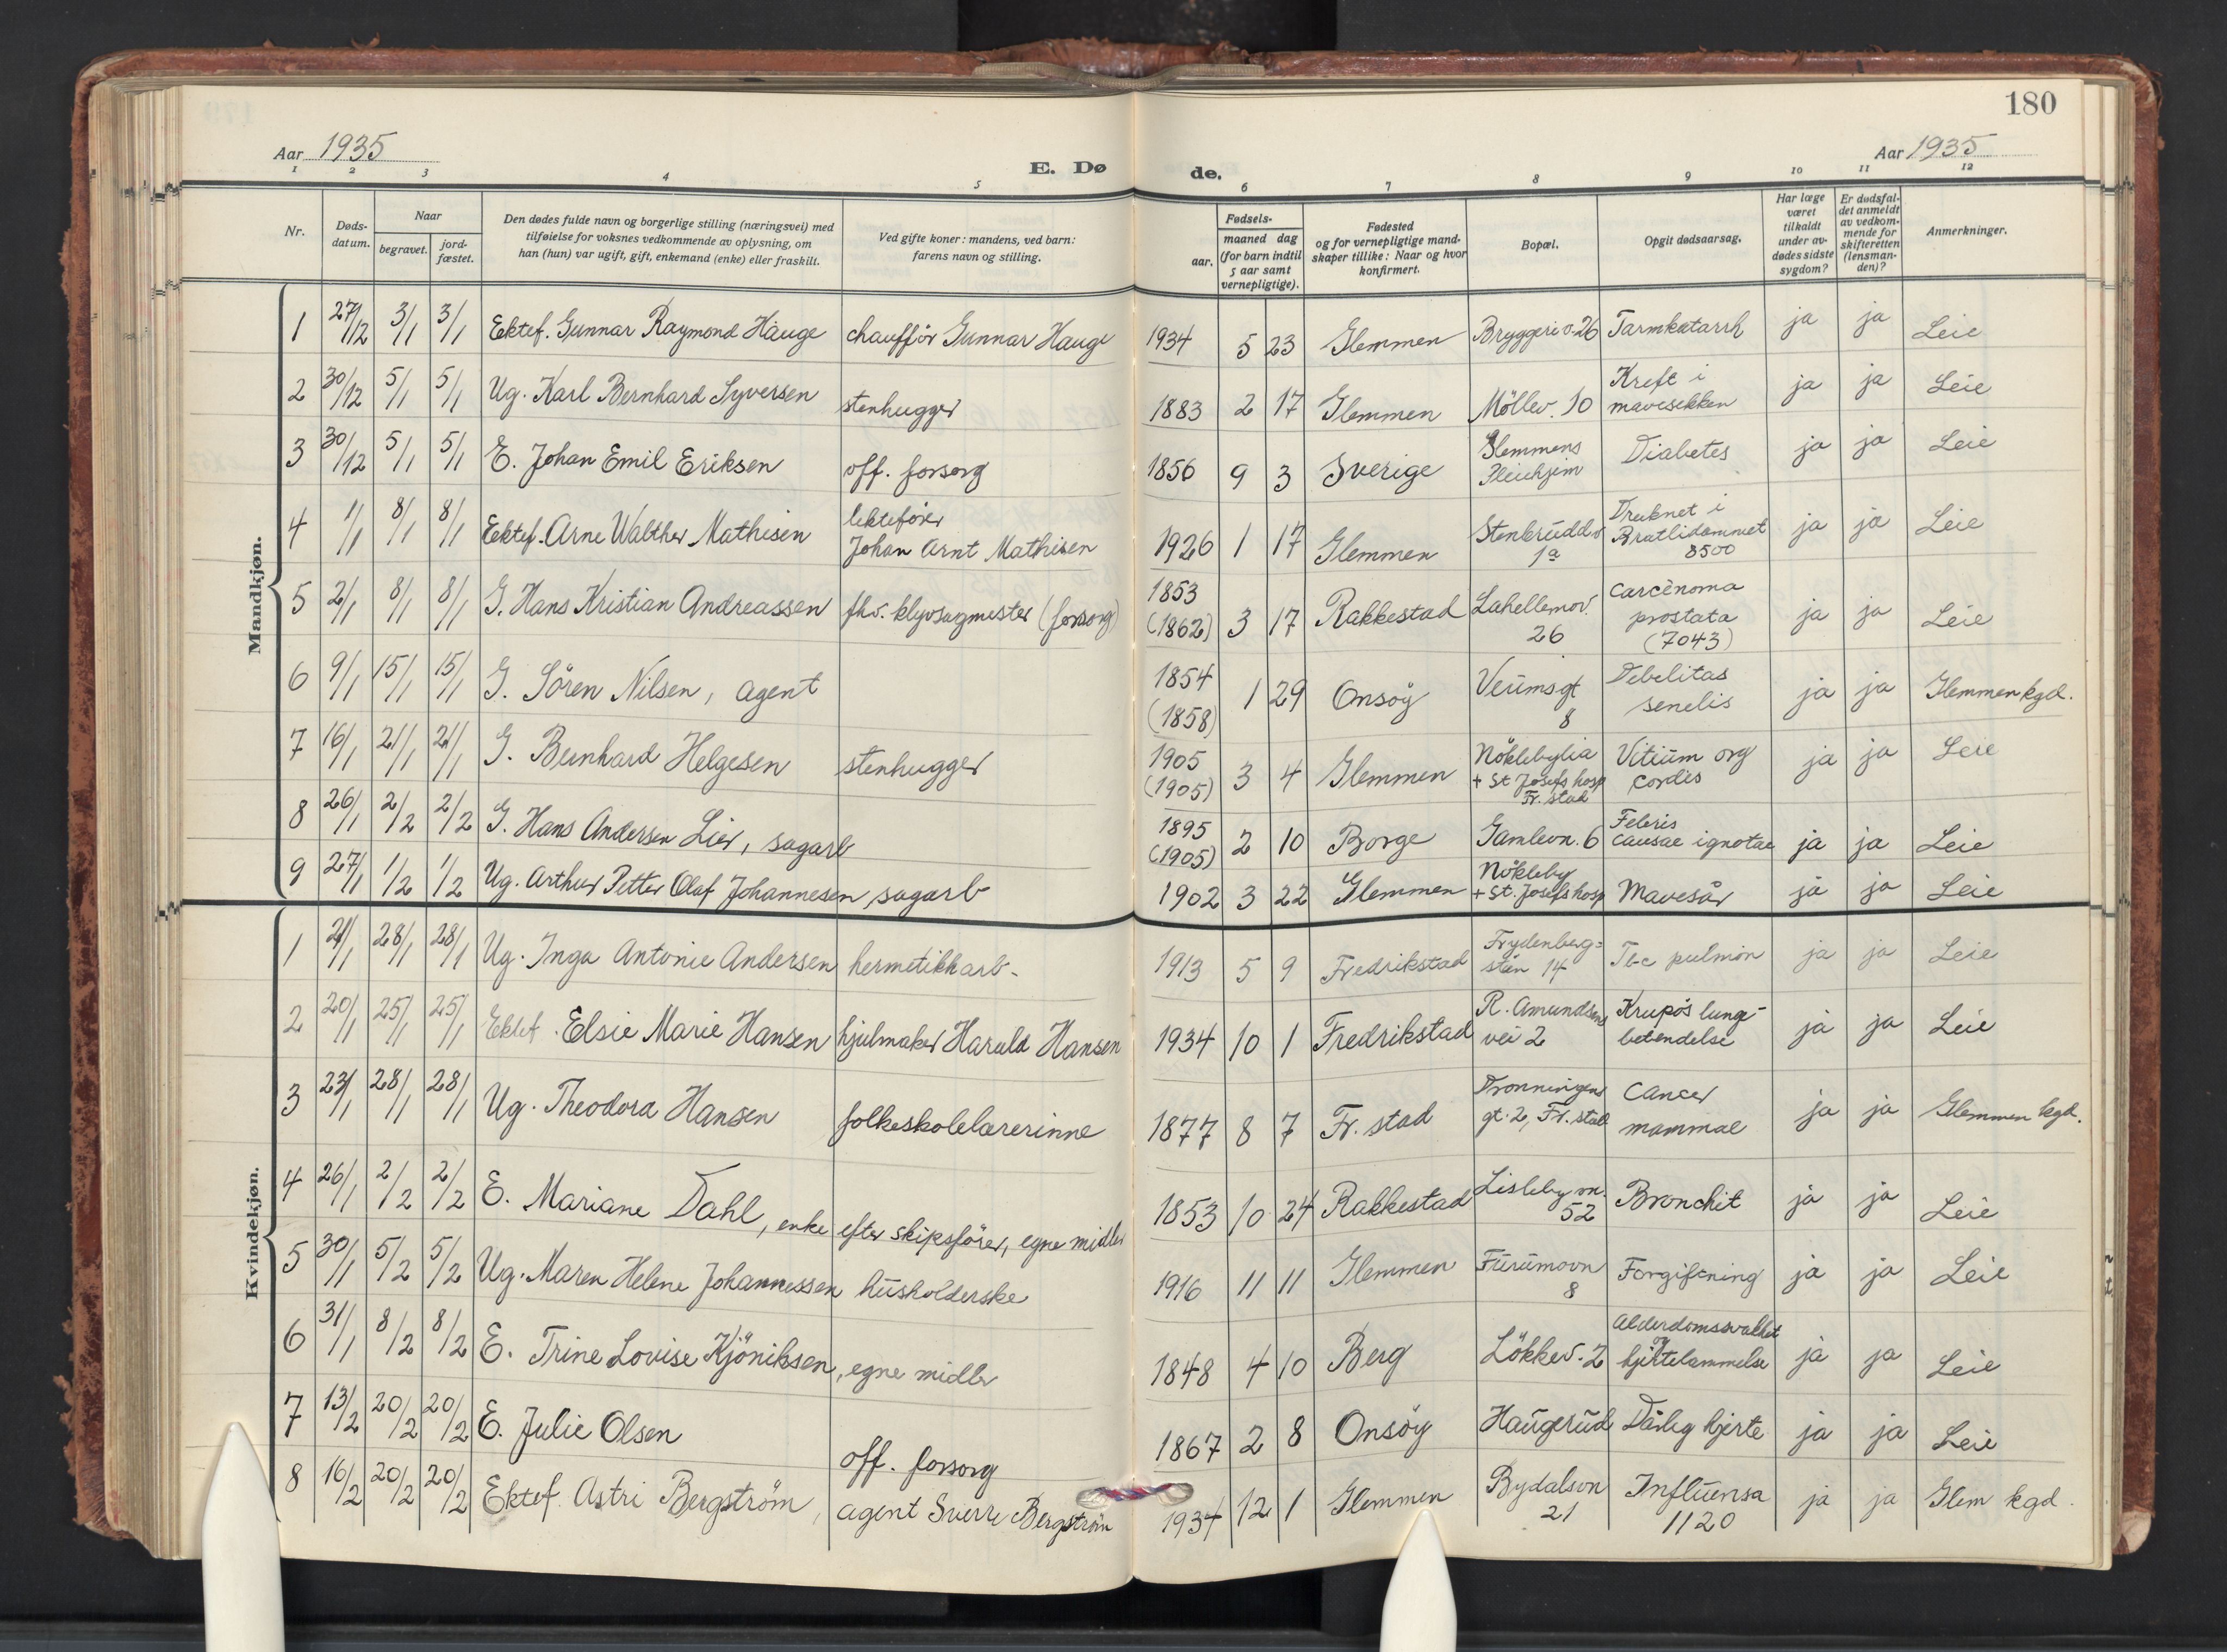 180
Aar 1935
E. Døde.
Aar 1935
1 2 3 4 5 6 7 8 9 10 11 12
Nr.
Døds-
datum.
Naar
begravet.
jord-
fæstet.
Den dødes fulde navn og borgerlige stilling (næringsvei) med
tilføielse for voksnes vedkommende av oplysning, om
han (hun) var ugift, gift, enkemand (enke) eller fraskilt.
Ved gifte koner: mandens, ved barn:
farens navn og stilling.
Fødsels-
aar.
maaned dag
(for barn indtil
5 aar samt
vernepligtige).
Fødested
og for vernepligtige mand-
skaper tillike: Naar og hvor
konfirmert.
Bopæl.
Opgit dødsaarsag.
Har læge
været
tilkaldt
under av-
dødes sidste
sygdom?
Er dødsfal-
det anmeldt
av vedkom-
mende for
skifteretten
(lensman-
den)?
Anmerkninger.
Mandkjøn.
1 27/12 3/1 3/1 Ektef. Gunnar Raymond Hauge chaufför Gunnar Hauge 1934 5 23 Glemmen Bryggeriv. 26 Tarmkatarrh ja ja Leie
2 30/12 5/1 5/1 Ug. Karl Bernhard Syversen stenhugger 1883 2 17 Glemmen Möllev. 10 Kreft i
mavesekken ja ja Leie
3 30/12 5/1 5/1 E. Johan Emil Eriksen off. forsorg 1856 9 3 Sverige Glemmens
Pleiehjem Diabetes ja ja Leie
4 1/1 8/1 8/1 Ektef. Arne Walther Mathisen lektefører
Johan Arnt Mathisen 1926 1 17 Glemmen Stenbruddv
1a Druknet i
Bratlidammet
8500 ja ja Leie
5 2/1 8/1 8/1 G. Hans Kristian Andreassen fhv. klyvsagmester (forsorg) 1853
(1862) 3 17 Rakkestad Lahellemov.
26 Carcenoma
prostata
(7043) ja ja Leie
6 9/1 15/1 15/1 G. Sören Nilsen, agent 1854
(1858) 1 29 Onsöy Veumsgt
8 Debelitas
senelis ja ja Glemmen kgd.
7 16/1 21/1 21/1 G. Bernhard Helgesen stenhugger 1905
(1905) 3 4 Glemmen Nöklebylia
+ St Josefs hosp
Fr. stad Vitium org
cordis ja ja Leie
8 26/1 2/2 2/2 G. Hans Andersen Lier, sagarb 1895
(1905) 2 10 Borge Gamlevn. 6 Febris
causae ignotae ja ja Leie
9 27/1 1/2 1/2 Ug. Arthur Petter Olaf Johannesen, sagarb 1902 3 22 Glemmen Nökleby
+ St. Josefs hosp Mavesår ja ja Leie
Kvindekjøn.
1 21/1 28/1 28/1 Ug. Inga Antonie Andersen hermetikkarb- 1913 5 9 Fredrikstad Frydenberg=
sten 14 Tbc pulmon ja ja Leie
2 20/1 25/1 25/1 Ektef. Elsie Marie Hansen hjulmaker Harald Hansen 1934 10 1 Fredrikstad R. Amundsens
vei 2 Krupös lunge-
betendelse ja ja Leie
3 23/1 28/1 28/1 Ug. Theodora Hansen folkeskolelærerinne 1877 8 7 Fr. stad Dronningens
gt. 2, Fr. stad Cancer
mammae ja ja Glemmen kgd.
4 26/1 2/2 2/2 E. Mariane Dahl, enke efter skipsförer, egne midler 1853 10 24 Rakkestad Lisleby vn.
52 Bronchit ja ja Leie
5 30/1 5/2 5/2 Ug. Maren Helene Johannessen husholderske 1916 11 11 Glemmen Furumovn
8 Forgiftning ja ja Leie
6 31/1 8/2 8/2 E. Trine Lovise Kjöniksen, egne midler 1848 4 10 Berg Lökkev. 2 Alderdomssvakhet
og
hjertelammelse ja ja Leie
7 13/2 20/2 20/2 E. Julie Olsen off. forsorg 1867 2 8 Onsöy Haugerud Dårlig hjerte ja ja Leie
8 16/2 20/2 20/2 Ektef. Astri Bergström, agent Sverre Bergström 1934 12 1 Glemmen Bydalsvn
21 Influensa
1120 ja ja Glem kgd.